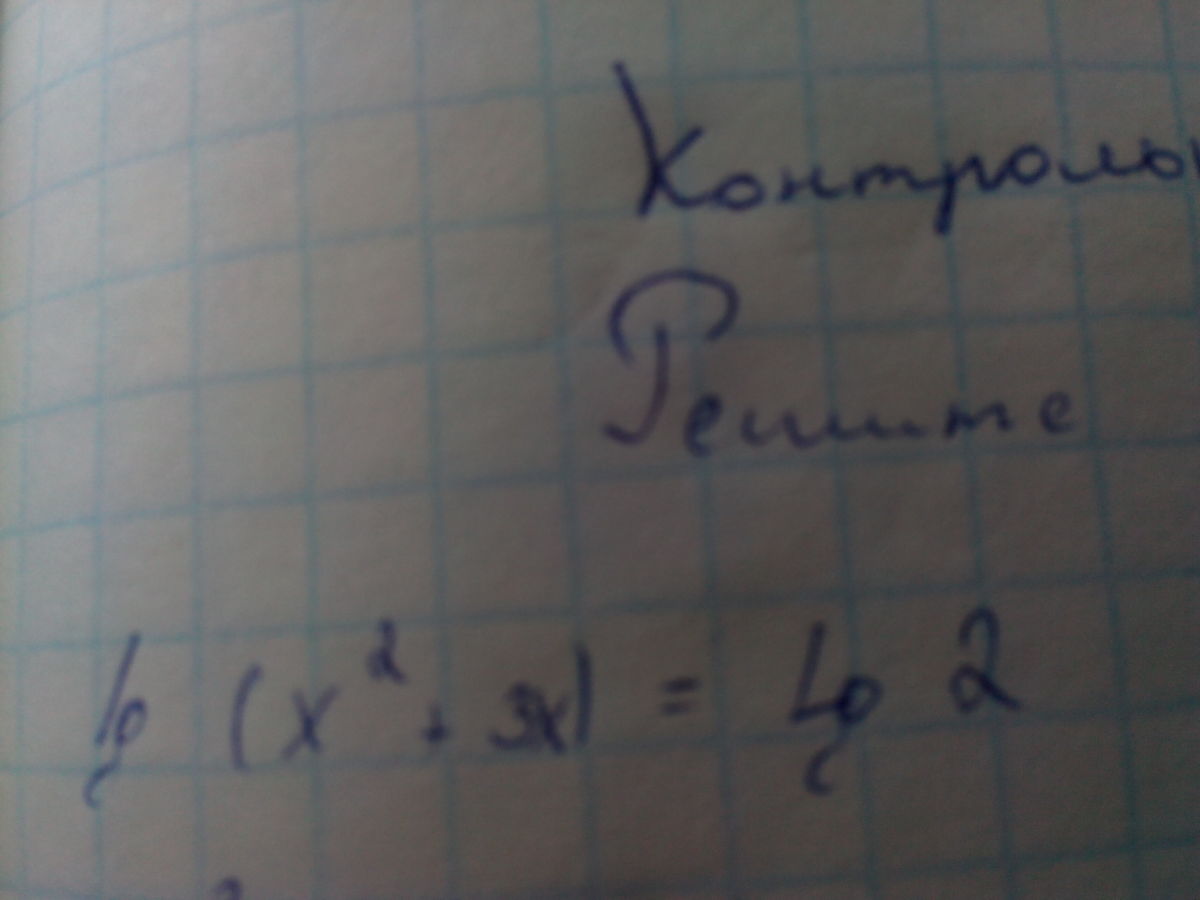 Контроль
Решите
lg (x² + 3x) = lg 2